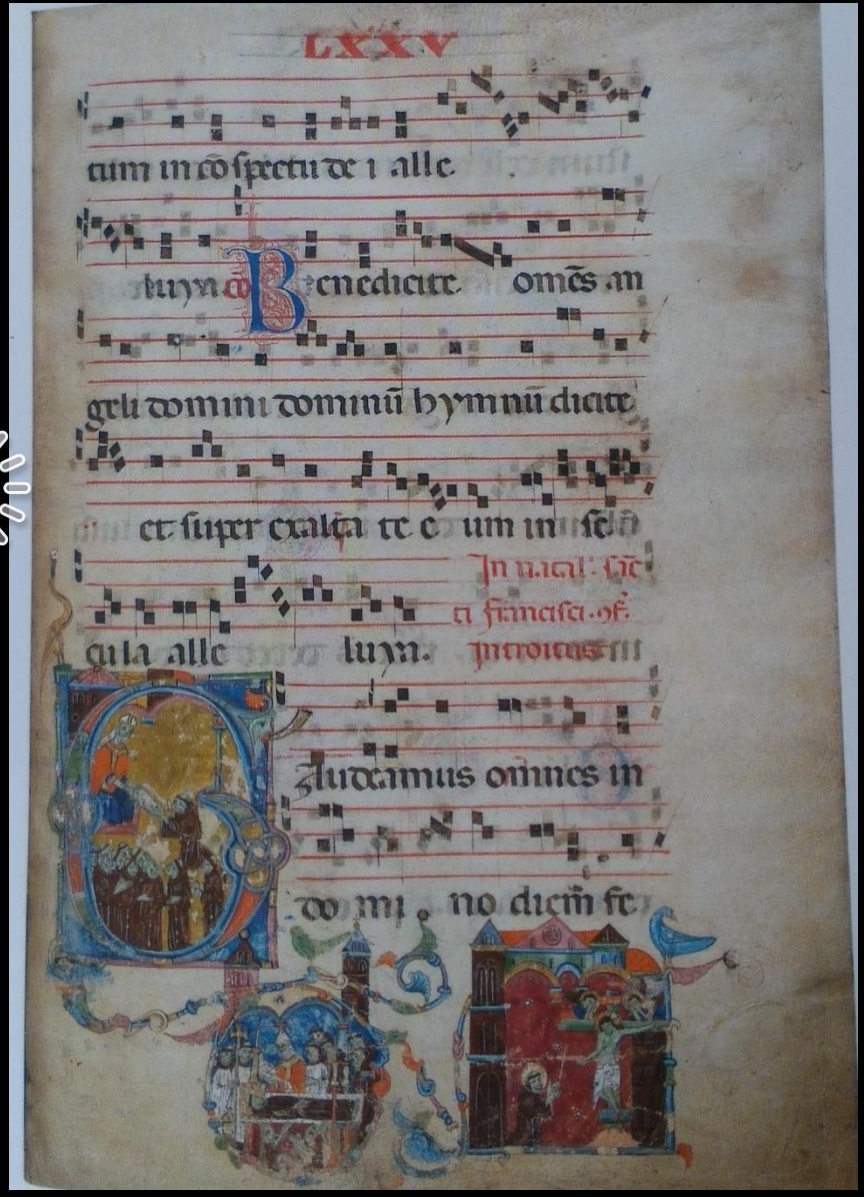 LXXV
tum in cō spectu de i alle
luya cō Benedicite omēs an
geli domini dominū hymnū dicite
et super exalta te e um in se
cula alle luya. In natal. sāc
ti francisci.
introitus
Gaudeamus omnes in
do mi no diem fe